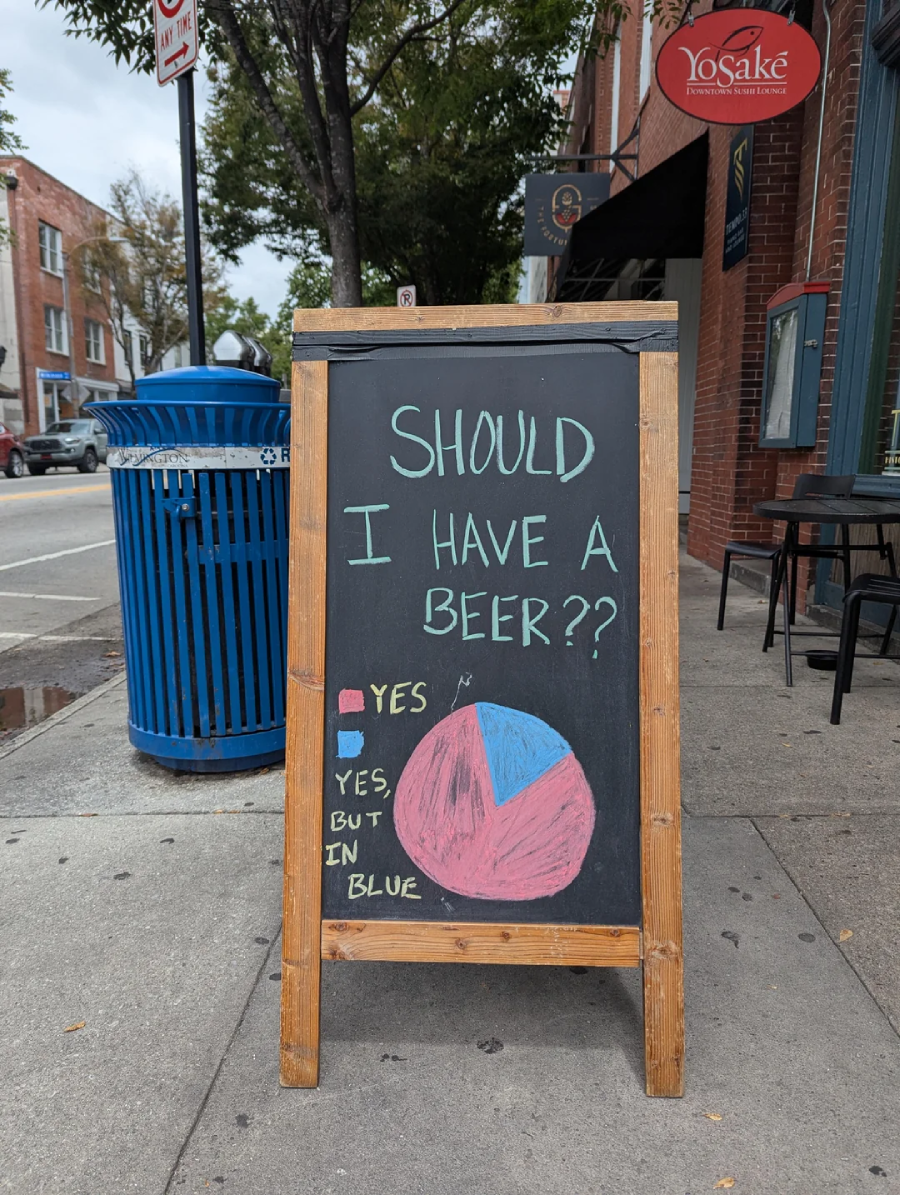 ANY TIME
YoSaké
DOWNTOWN SUSHI LOUNGE
WILMINGTON
R
SHOULD
I HAVE A
BEER??
YES
YES,
BUT
IN
BLUE